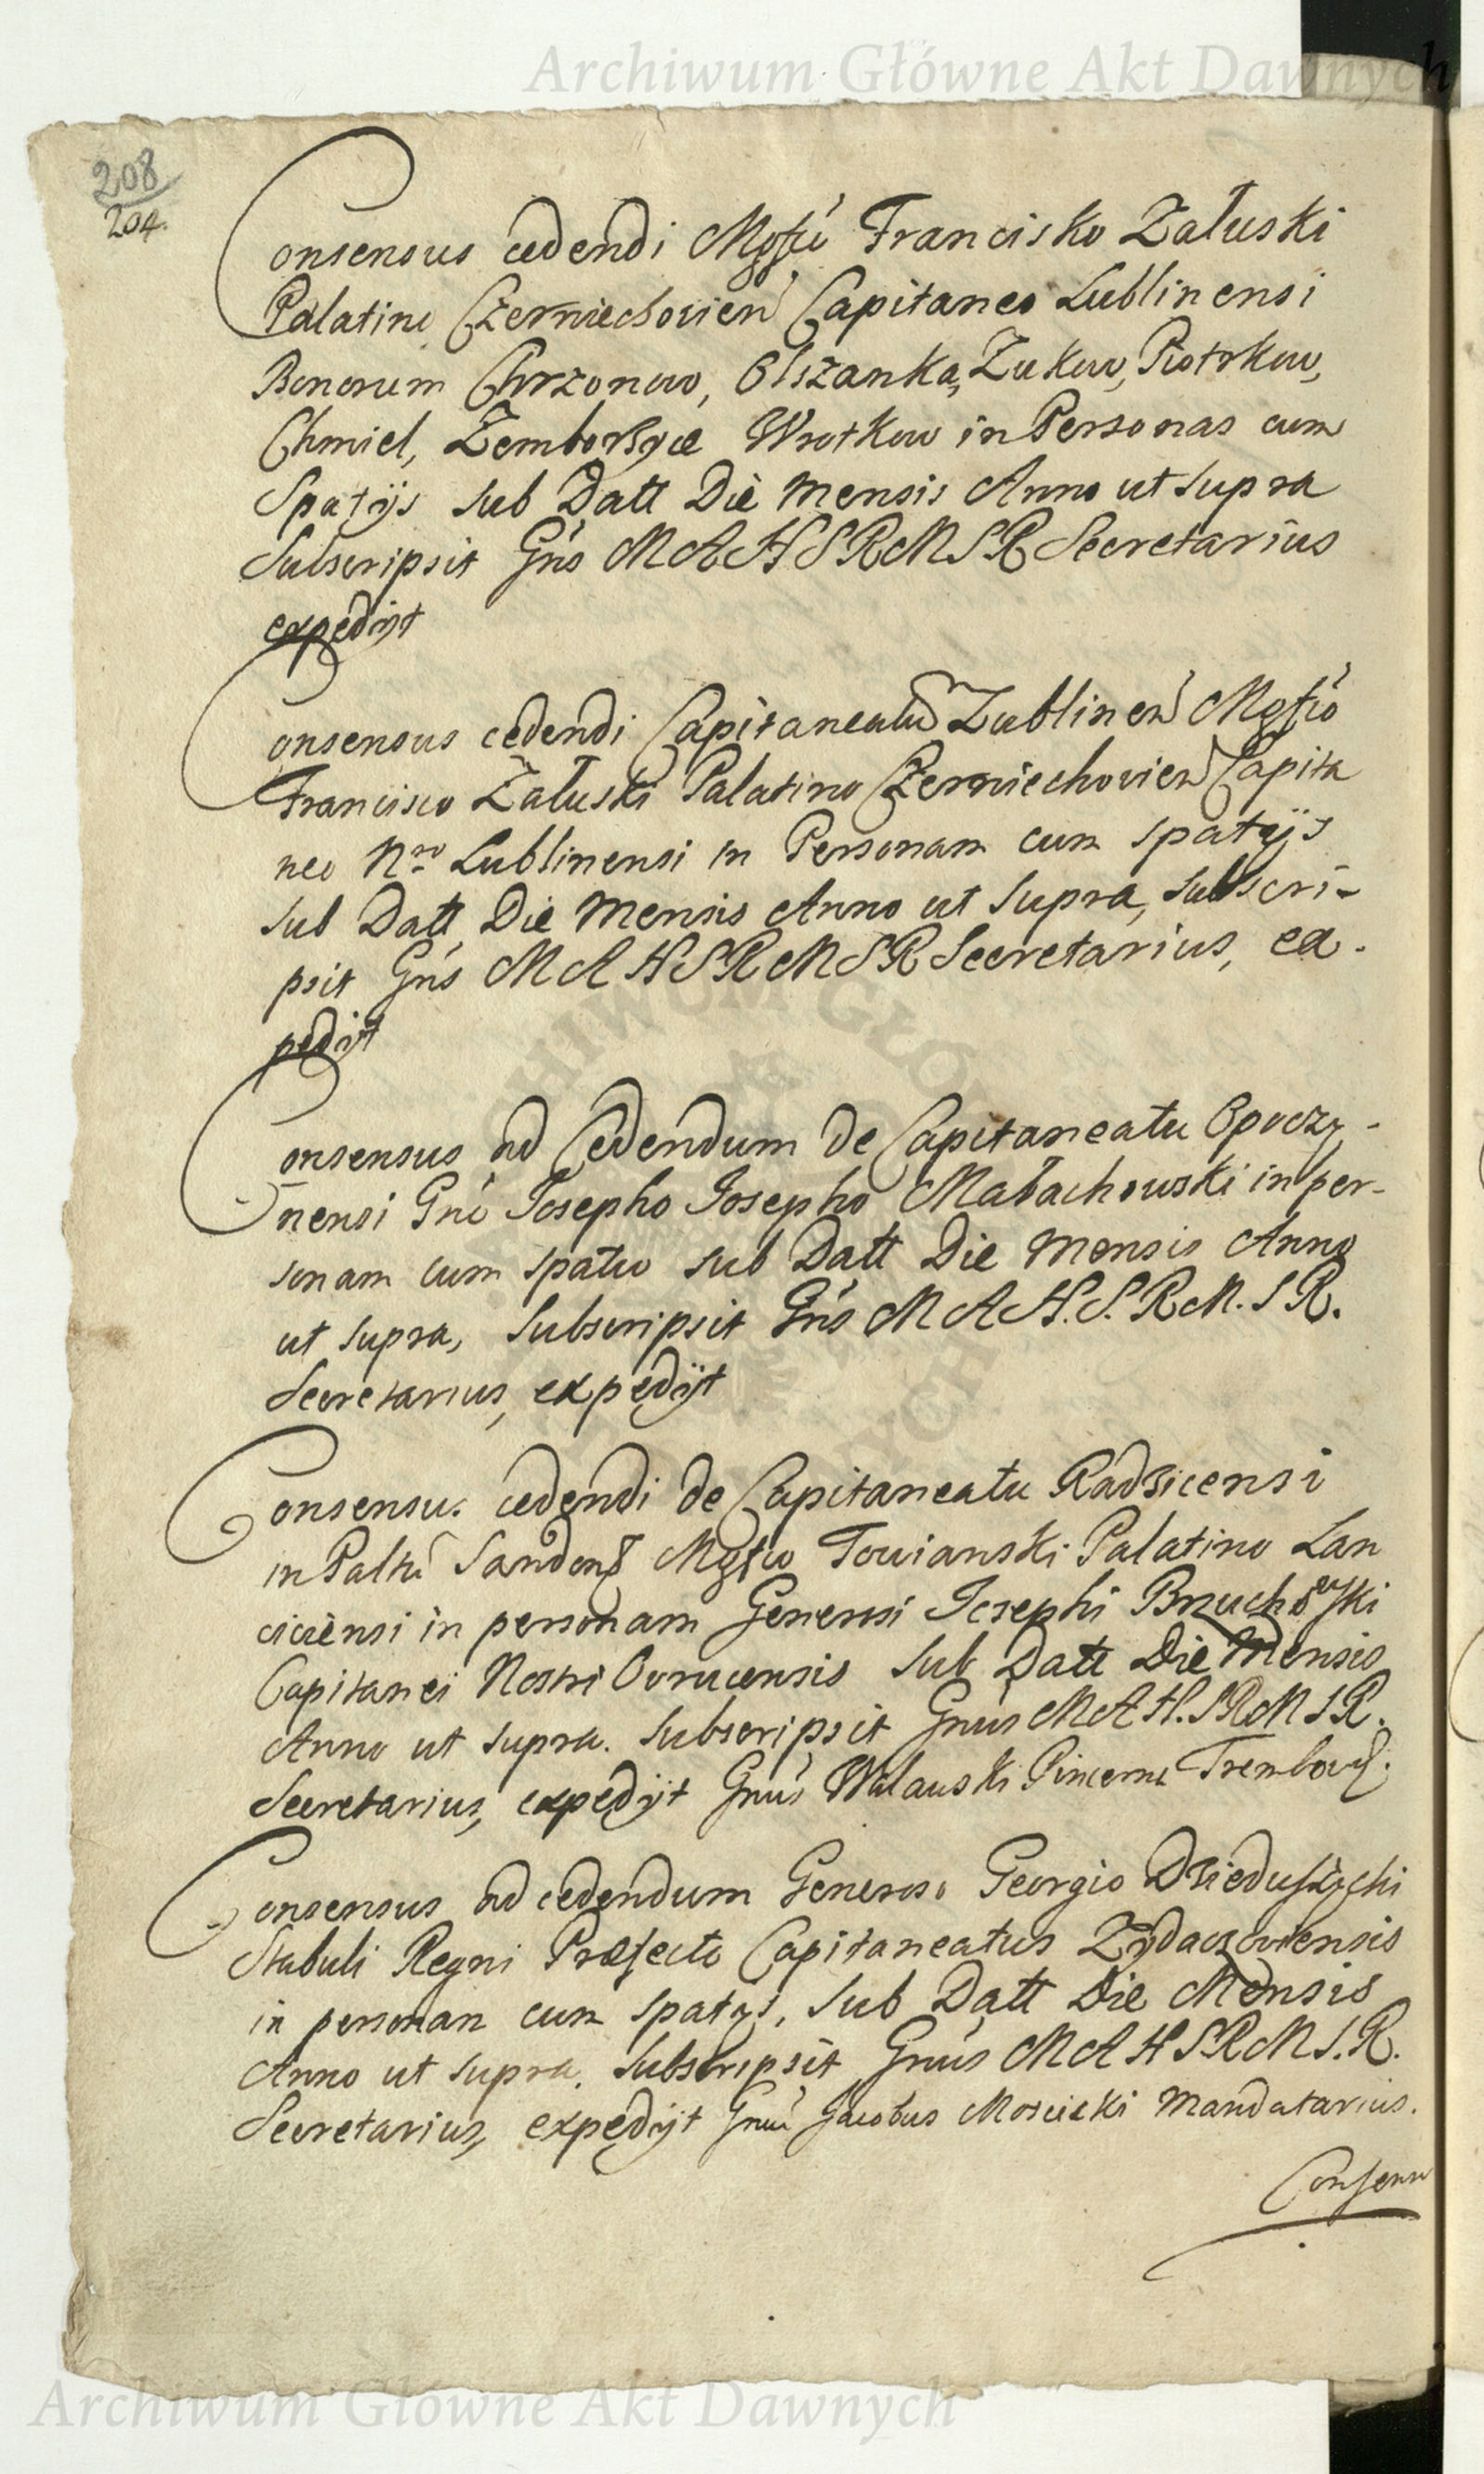 Archiwum Główne Akt Dawnych
208
204.
Consensus cedendi Mgfco Francisko Załuski
Palatino Czerniechovien Capitaneo Lublinensi
Bonorum Chrzonow, Olszanka, Zukow, Piotrkow,
Chmiel, Zemborzyce Wrotkow in Personas cum
Spatijs sub Datt Die Mensis Anno ut supra
Subscripsit Gns M A H S R M S R Secretarius
expedijt
Consensus cedendi Capitaneatu Lublinen Mgfco
Francisco Załuski Palatino Czerniechovien Capita
neo Nro Lublinensi in Personam cum spatijs
sub Datt Die Mensis Anno ut supra, subscri-
psit Gns M A H S R M S R Secretarius, ex-
pedijt
Consensus ad Cedendum de Capitaneatu Opoczy-
nensi Gne Josepho Josepho Małachowski in per-
sonam cum spatio sub Datt Die Mensis Anno
ut supra, Subscripsit Gns M A H. S. R M. S R.
Secretarius, expedijt
Consensus cedendi de Capitaneatu Radzicensi
in Paltu Sandom Mgfco Towianski Palatino Lan
ciciensi in personam Generosi Josephi Bruchowski
Capitanei Nostri Ovrucensis sub Datt Die Mensis
Anno ut supra. Subscripsit Gnus M A H. S R M S R.
Secretarius, expedijt Gnus Wilawski Pincerna Trembowl:
Consensus ad cedendum Generoso Georgio Dzieduszycki
Stabuli Regni Præfecto Capitaneatus Zydaczoviensis
in personam cum spatijs, sub Datt Die Mensis
Anno ut supra. Subscripsit Gnus M A H S R M S. R.
Secretarius, expedijt Gnus Jacobus Moscicki Mandatarius.
Consensu
Archiwum Główne Akt Dawnych